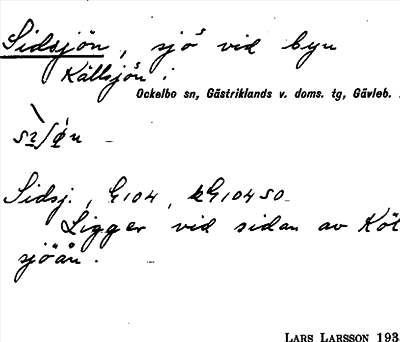 Sidsjön, sjö vid byn
Källsjön i
Ockelbo sn, Gästriklands v. doms. tg, Gävleb.
Sidsj., G104, kG104 SO
Ligger vid sidan av Köl
sjöån.
LARS LARSSON 193